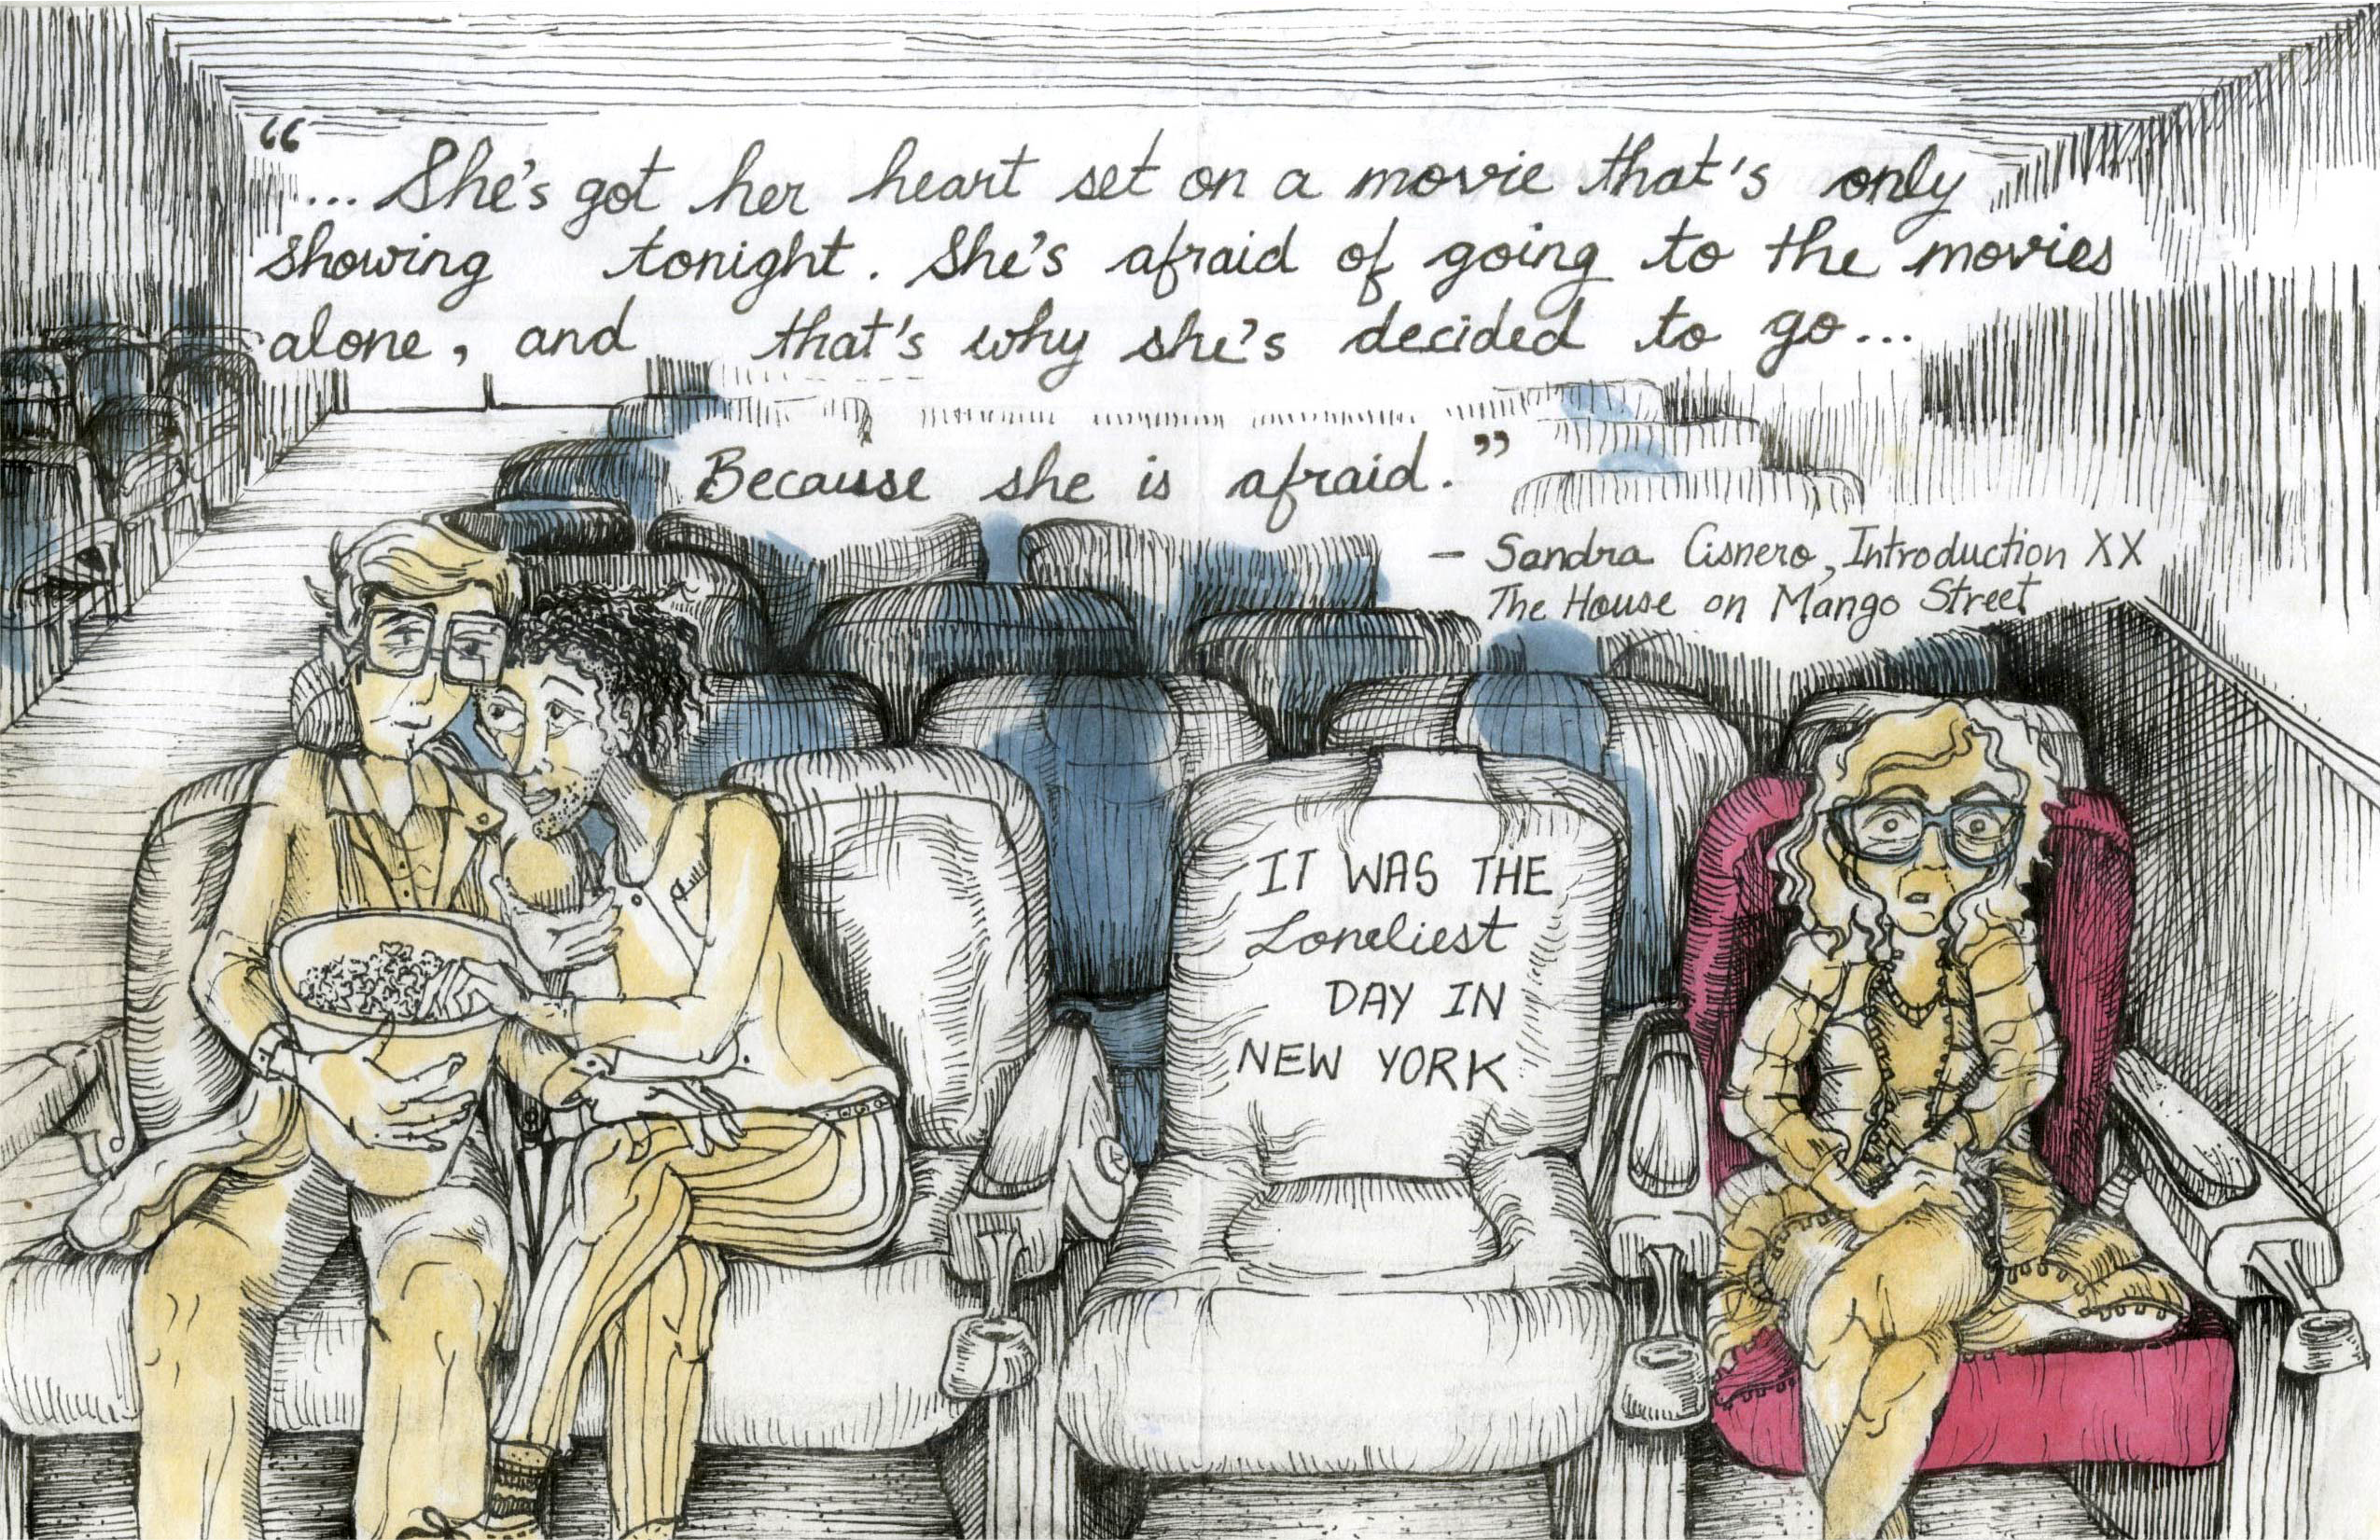 “... She's got her heart set on a movie that's only
showing tonight. She's afraid of going to the movies
alone, and that's why she's decided to go...
Because she is afraid.”
– Sandra Cisnero, Introduction XX
The House on Mango Street
IT WAS THE
Loneliest
DAY IN
NEW YORK